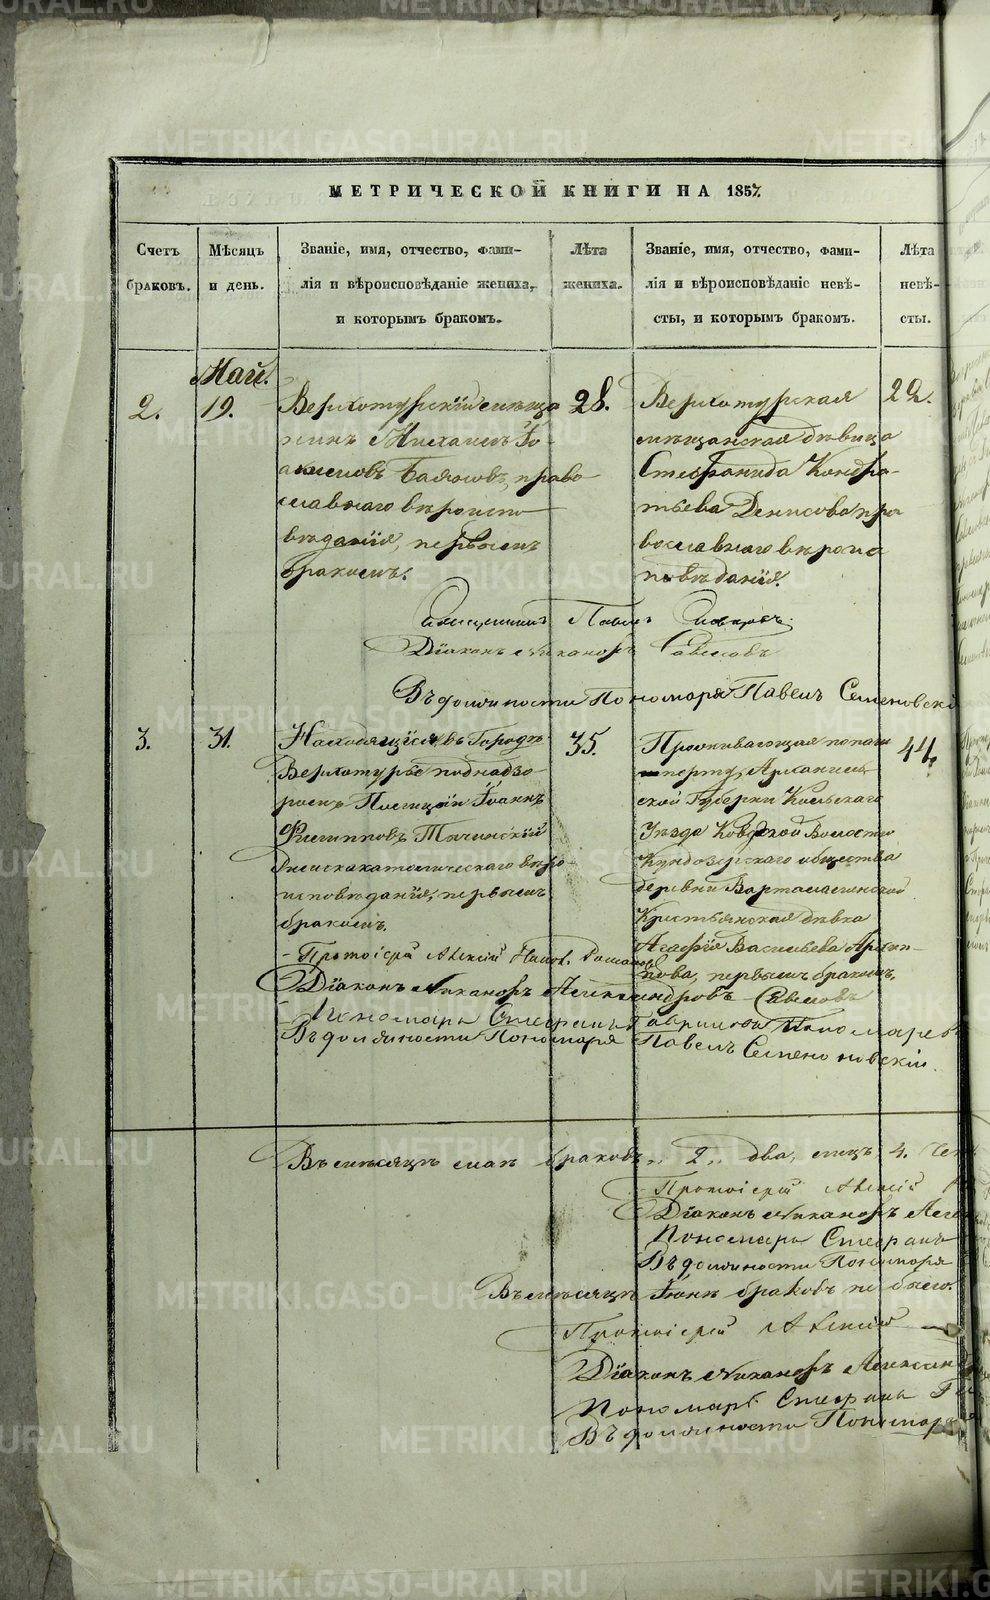 МЕТРИЧЕСКОЙ КНИГИ НА 1857.
Счетъ браковъ.
Мѣсяцъ и день.
Званіе, имя, отчество, фами-
лія и вѣроисповѣданіе жениха,
и которымъ бракомъ.
Лѣта жениха.
Званіе, имя, отчество, фами-
лія и вѣроисповѣданіе невѣ-
сты, и которымъ бракомъ.
Лѣта невѣ-
сты.
Май.
2.
19.
Верхотурскій мѣща
нинъ Михаилъ Іо-
акимовъ право
славнаго вѣроиспо
вѣданія, первымъ
бракомъ.
28.
Верхотурская
мѣщанская дѣвица
Стефанида Кондра-
тьева Денисова пра
вославнаго вѣроис
повѣданія.
22.
Священникъ Павелъ
Діаконъ Никаноръ
Въ должности Пономаря Павелъ Семеновскі
3.
31.
Находящійся въ Городѣ
Верхотурьѣ подъ надзо-
ромъ Полиціи Іоаннъ
Филипповъ
римскакатолическаго вѣро
исповѣданія, первымъ
бракомъ.
35.
Проживающая по паш
порту, Архангель-
ской Губерніи Кольскаго
Уѣзда Ковдской Волости
общества
деревни
Крестьянская дѣвка
Агафія Васильева Архип-
пова, первымъ бракомъ.
44.
Протоіерей Алексій
Діаконъ Никаноръ Александровъ
Пономарь Стефанъ Гавриловъ Пономаревъ
Въ должности Пономаря Павелъ Семеновскій.
Въ мѣсяцѣ маѣ браковъ „ 2 „ два, лицъ 4.
Протоіерей Алексій
Діаконъ Никаноръ
Пономарь Стефанъ
Въ должности Пономаря
Въ мѣсяцѣ Іюнѣ браковъ не было.
Протоіерей Алексій
Діаконъ Никаноръ Александ
Пономарь Стефанъ
Въ должности Пономаря
METRIKI.GASO-URAL.RU